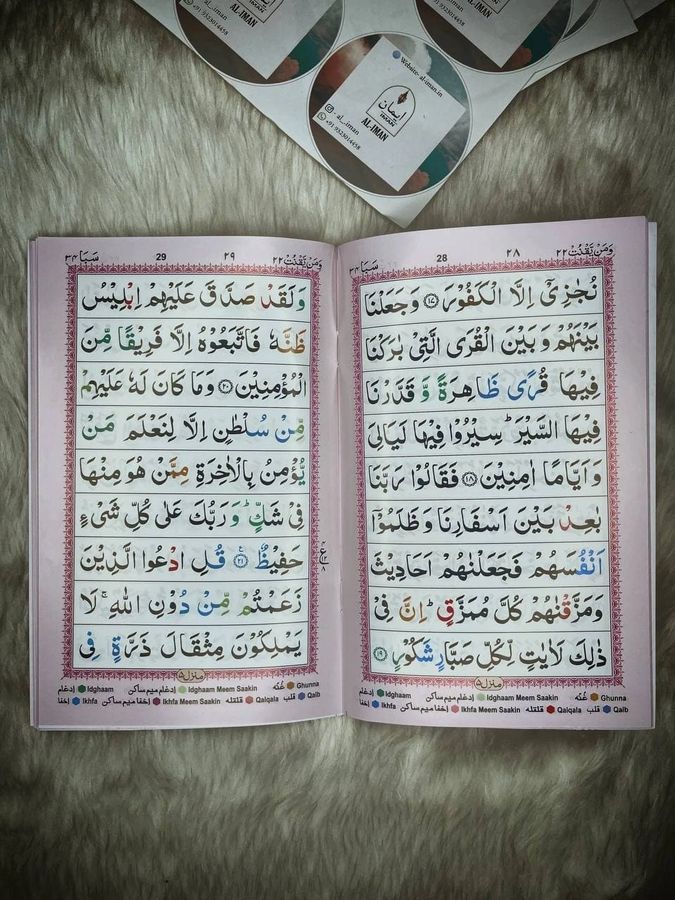 Website- al-iman.in
ایمان
IMAN
AL-IMAN
al__iman
+91 9323014458
+91 9323014458
AL-IMAN
AL-IMAN
وَمَنْ يَّقْنُتْ ٢٢
٢٨
28
سَبَا ٣٤
نُجٰزِیْۤ اِلَّا الْكَفُوْرَ ١٧ وَجَعَلْنَا
بَیْنَهُمْ وَبَیْنَ الْقُرَی الَّتِیْ بٰرَكْنَا
فِیْهَا قُرًی ظَاهِرَةً وَّ قَدَّرْنَا
فِیْهَا السَّیْرَ ؕ سِیْرُوْا فِیْهَا لَیَالِیَ
وَاَیَّامًا اٰمِنِیْنَ ١٨ فَقَالُوْا رَبَّنَا
بٰعِدْ بَیْنَ اَسْفَارِنَا وَظَلَمُوْۤا
اَنْفُسَهُمْ فَجَعَلْنٰهُمْ اَحَادِیْثَ
وَمَزَّقْنٰهُمْ كُلَّ مُمَزَّقٍ ؕ اِنَّ فِیْ
ذٰلِكَ لَاٰیٰتٍ لِّكُلِّ صَبَّارٍ شَكُوْرٍ ١٩
منزل ٥
ادغام Idghaam ادغام میم ساکن Idghaam Meem Saakin غُنّه Ghunna
اِخفا Ikhfa اِخفا میم ساکن Ikhfa Meem Saakin قلقله Qalqala قلب Qalb
وَمَنْ يَّقْنُتْ ٢٢
٢٩
29
سَبَا ٣٤
وَلَقَدْ صَدَّقَ عَلَیْهِمْ اِبْلِیْسُ
ظَنَّهٗ فَاتَّبَعُوْهُ اِلَّا فَرِیْقًا مِّنَ
الْمُؤْمِنِیْنَ ٢٠ وَمَا كَانَ لَهٗ عَلَیْهِمْ
مِّنْ سُلْطٰنٍ اِلَّا لِنَعْلَمَ مَنْ
یُّؤْمِنُ بِالْاٰخِرَةِ مِمَّنْ هُوَ مِنْهَا
فِیْ شَكٍّ ؕ وَرَبُّكَ عَلٰی كُلِّ شَیْءٍ
حَفِیْظٌ ٢١ قُلِ ادْعُوا الَّذِیْنَ
زَعَمْتُمْ مِّنْ دُوْنِ اللّٰهِ ۚ لَا
یَمْلِكُوْنَ مِثْقَالَ ذَرَّةٍ فِی
منزل ٥
ادغام Idghaam ادغام میم ساکن Idghaam Meem Saakin غُنّه Ghunna
اِخفا Ikhfa اِخفا میم ساکن Ikhfa Meem Saakin قلقله Qalqala قلب Qalb